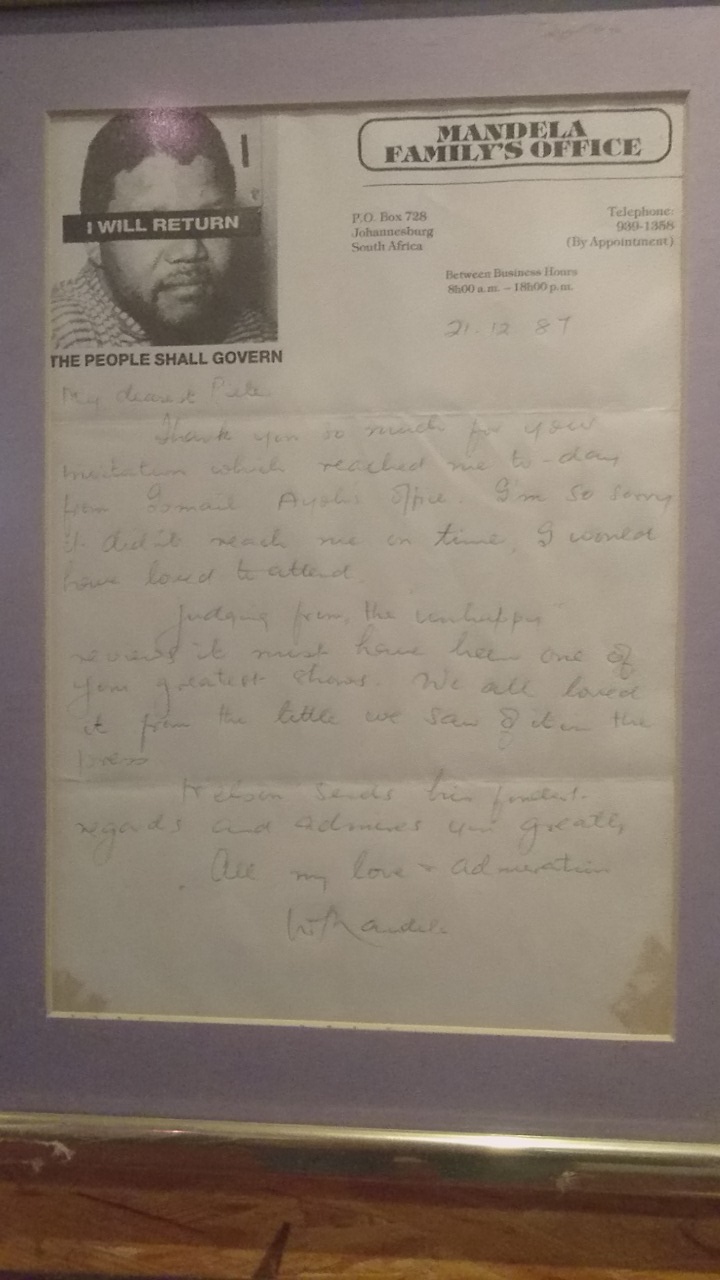 MANDELA
FAMILY'S OFFICE
I WILL RETURN
THE PEOPLE SHALL GOVERN
P.O. Box 728
Johannesburg
South Africa
Telephone:
939-1358
(By Appointment)
Between Business Hours
8h00 a.m. – 18h00 p.m.
21.12.87
My dearest
Thank you so much for your
invitation which reached me to-day
from Ismail Ayob's office. I'm so sorry
it didn't reach me in time, I would
have loved to attend.
Judging from, the "unhappy"
reviews it must have been one of
your greatest shows. We all loved
it from the little we saw of it in the
press
Nelson sends his fondest
regards and admires you greatly
All my love & admiration
Mandela